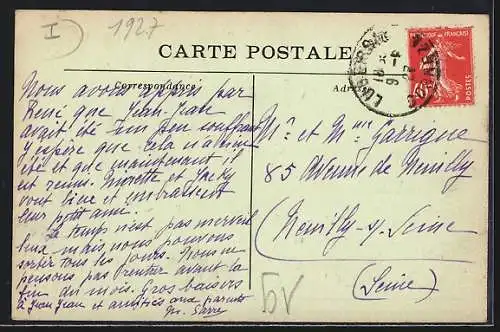 I) 1927
CARTE POSTALE
Correspondance
Nous avons appris par
René que Jean-Jean
avait été un peu souffrant
j'espère que cela n'a
été et que maintenant il
est remis. Morette et Jacky
vont bien et embrassent
leur petit ami.
Le temps n'est pas merveil
leux mais nous pouvons
sortir tous les jours. Nous ne
pensons pas rentrer avant la
fin du mois. Gros baisers
à Jean Jean et amitiés aux parents
M. Sarre
Mr et Mme Garrigue
85 Avenue de Neuilly
Neuilly-s/-Seine
(Seine)
POSTES